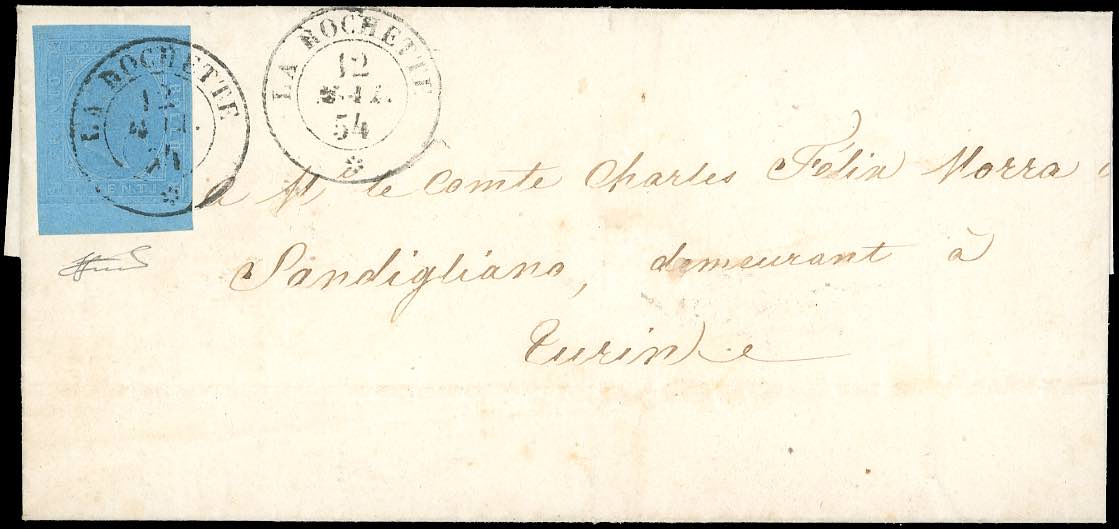 LA ROCHETTE
12
54
*
LA ROCHETTE
12
MAI.
54
*
a M le Comte Charles Félix Morra
Sandigliano, demeurant à
Turin